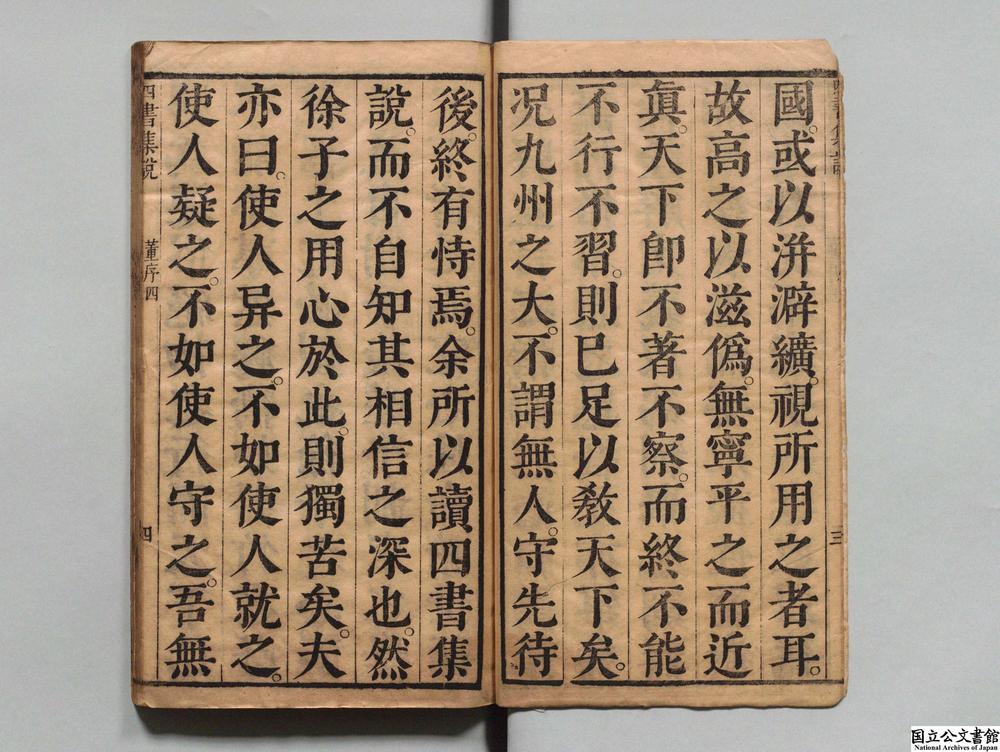 國。或以洴澼纊。視所用之者耳。
故高之以滋僞。無寧平之而近
眞。天下卽不著不察。而終不能
不行不習。則已足以敎天下矣。
况九州之大。不謂無人。守先待
三
後。終有恃焉。余所以讀四書集
說。而不自知其相信之深也。然
徐子之用心於此。則獨苦矣。夫
亦曰。使人异之。不如使人就之。
使人疑之。不如使人守之。吾無
四書集說
董序四
四
国立公文書館
National Archives of Japan